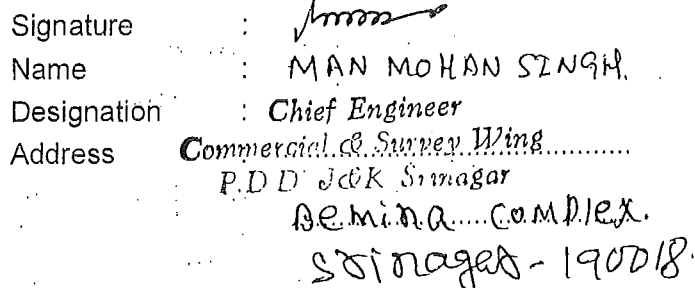 Signature :
Name : MAN MOHAN SINGH.
Designation : Chief Engineer
Address Commercial & Survey Wing
P.D.D J&K Srinagar
Bemina complex.
Srinagar - 190018.